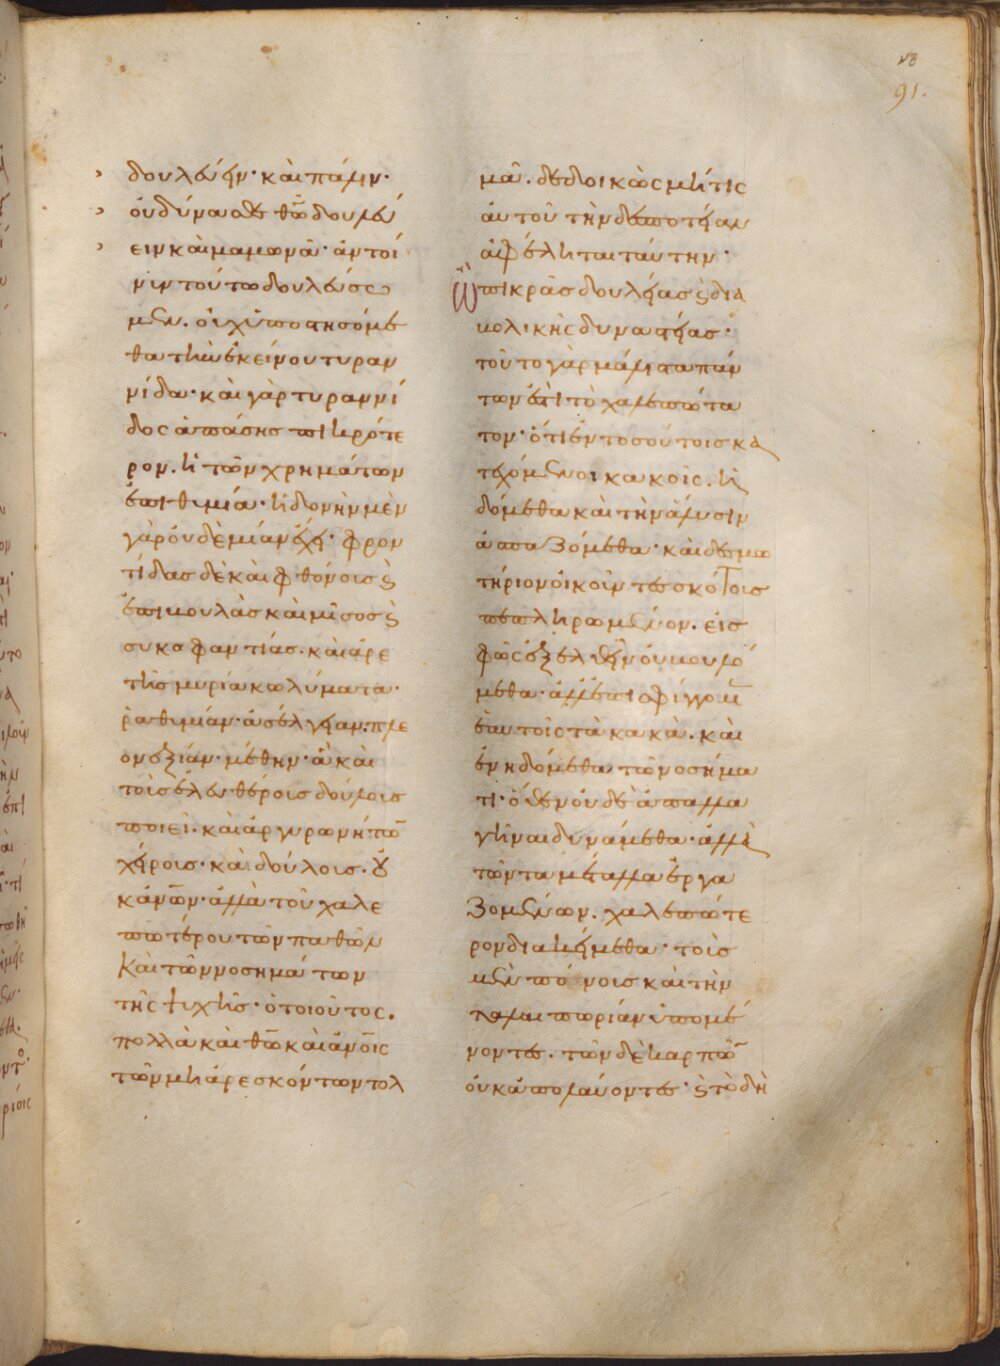 νθ
91.
δουλεύειν· καὶ πάλιν·
οὐ δύνασθε θ̅ω̅ δουλεύ
ειν καὶ μαμωνᾶ· ἂν τοί
νιν τούτω δουλεύσω
μεν. οὐχ ὑποστησόμε
θα τὴν ἐκείνου τυραν
νίδα· καὶ γὰρ τυραννί
δος ἁπάσης πικρότε
ρον. ἡ τῶν χρημάτων
ἐπιθυμία· ἡδονὴν μὲν
γὰρ οὐδὲ μίαν ἔχει· φρον
τίδας δὲ καὶ φθόνους ϗ
ἐπιβουλὰς καὶ μῖσος ϗ
συκοφαντίας. καὶ ἀρε
τῆς μυρία κωλύματα·
ῥαθυμίαν· ἀσέλγειαν. πλε
ονεξίαν· μέθην· ἃ καὶ
τοὺς ἐλευθέρους δούλους
ποιεῖ· καὶ ἀργυρωνήτω̅
χείρους· καὶ δούλοις. οὐ
κ ἀν̅ω̅ν· ἀλλὰ τοῦ χαλε
πωτέρου τῶν παθῶν
καὶ τῶν νοσημάτων
τῆς ψυχῆς· ὁ τοιοῦτος.
πολλὰ καὶ θ̅ω̅ καὶ ἀν̅ο̅ις
τῶν μὴ ἀρεσκόντων τολ
μᾶ. δεδοικὼς μή τις
αὐτοῦ τὴν δεσποτείαν
ἀφέληται ταύτην·
Ὢ πικρᾶς δουλείας ϗ δια
βολικῆς δυναστείας·
τοῦτο γὰρ μάλιστα πάν
των ἐστὶ τὸ χαλεπώτα
τον· ὅτι ἐν τοσούτοις κα
τεχόμενοι κακοῖς. ἡ
δόμεθα καὶ τὴν ἅλυσιν
ἀσπαζόμεθα· καὶ δεσμω
τήριον οἰκοῦντες σκότους
πεπληρωμένον. εἰς
φῶς ἐξελθεῖν οὐ βουλό
μεθα· ἀλλ' ἐπισφίγγομ̅
ἑαυτοῖς τὰ κακὰ. καὶ
ἐνηδόμεθα τῶ νοσήμα
τι· ὅθεν οὐδὲ ἀπαλλα
γῆναι δυνάμεθα· ἀλλὰ
τῶν τὰ μέταλλα ἐργα
ζομένων. χαλεπώτε
ρον διακείμεθα· τοὺς
μὲν πόνους καὶ τὴν
ταλαιπωρίαν ὑπομέ
νοντες. τῶν δὲ καρπῶ̅
οὐκ ἀπολαύοντες· ϗ τὸ δὴ